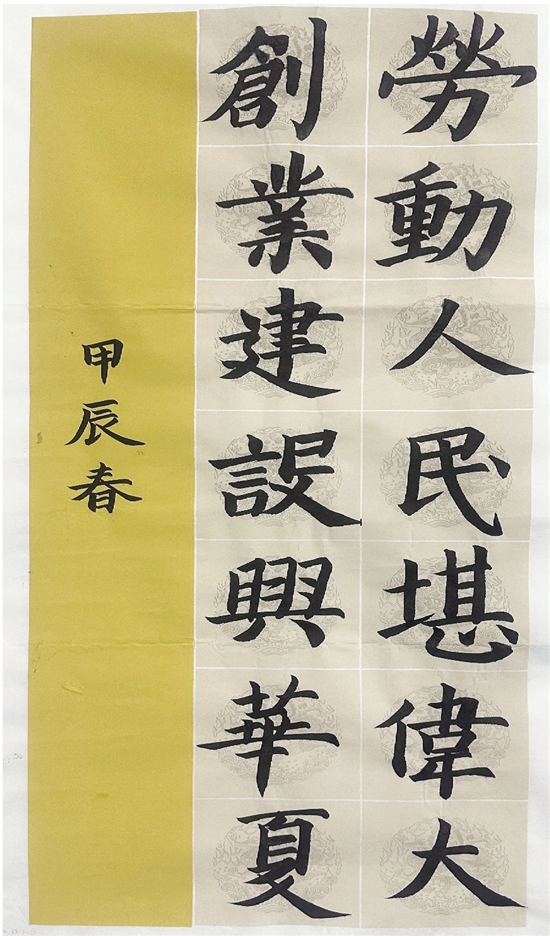 勞動人民堪偉大
創業建設興華夏
甲辰春